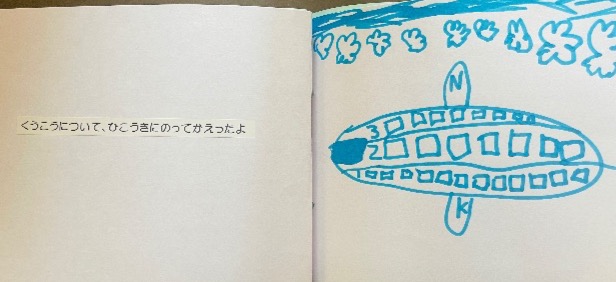 くうこうについて、ひこうきにのってかえったよ
N
3
2
1
K